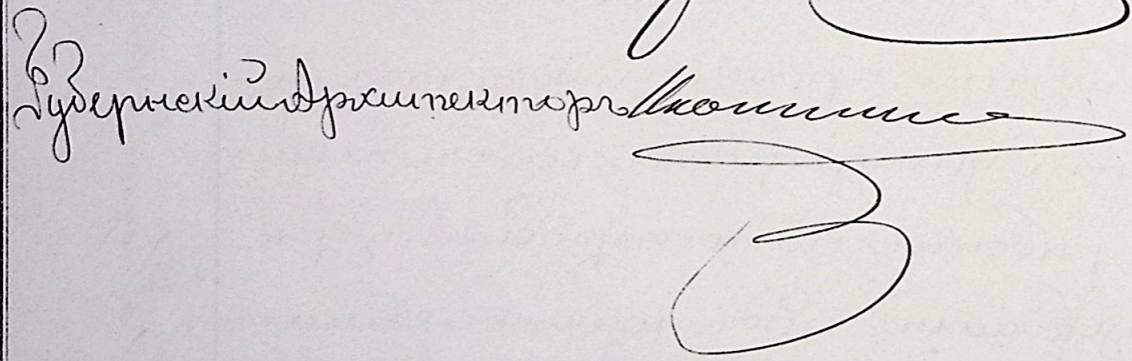 Губернскій Архитекторъ